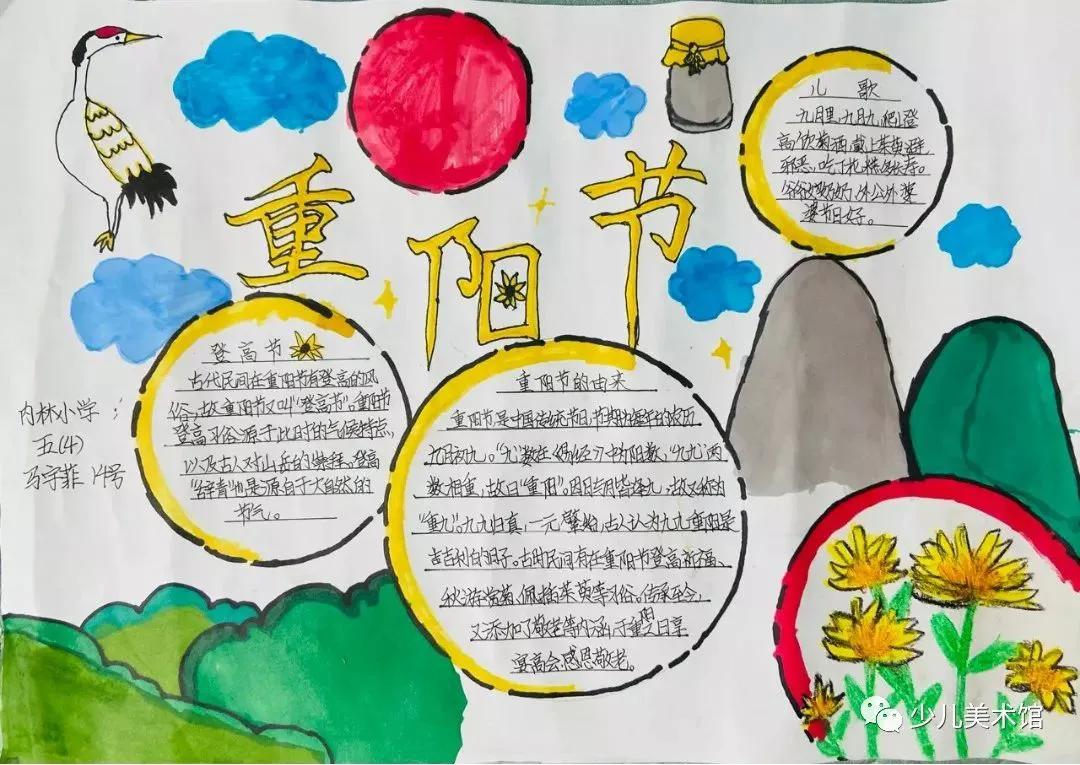 重阳节
儿歌
九月里,九月九,爬山登
高饮菊酒,戴上茱萸避
邪恶,吃了花糕多长寿。
爷爷奶奶,外公外婆
节日好。
登高节
古代民间在重阳节有登高的风
俗,故重阳节又叫“登高节”。重阳节
登高习俗源于此时的气候特点,
以及古人对山岳的崇拜。登高
“辞青”也是源自于大自然的
节气。
内林小学:
五(4)
马宇菲 14号
重阳节的由来
重阳节,是中国传统节日,节期为每年的农历
九月初九。“九”数在《易经》中为阳数,“九九”两
数相重,故曰“重阳”。因日与月皆逢九,故又称为
“重九”。九九归真,一元肇始,古人认为九九重阳是
吉利的日子。古时民间有在重阳节登高祈福、
秋游赏菊、佩插茱萸等习俗。传承至今,
又添加了敬老等内涵,于重阳之日享
宴高会,感恩敬老。
少儿美术馆